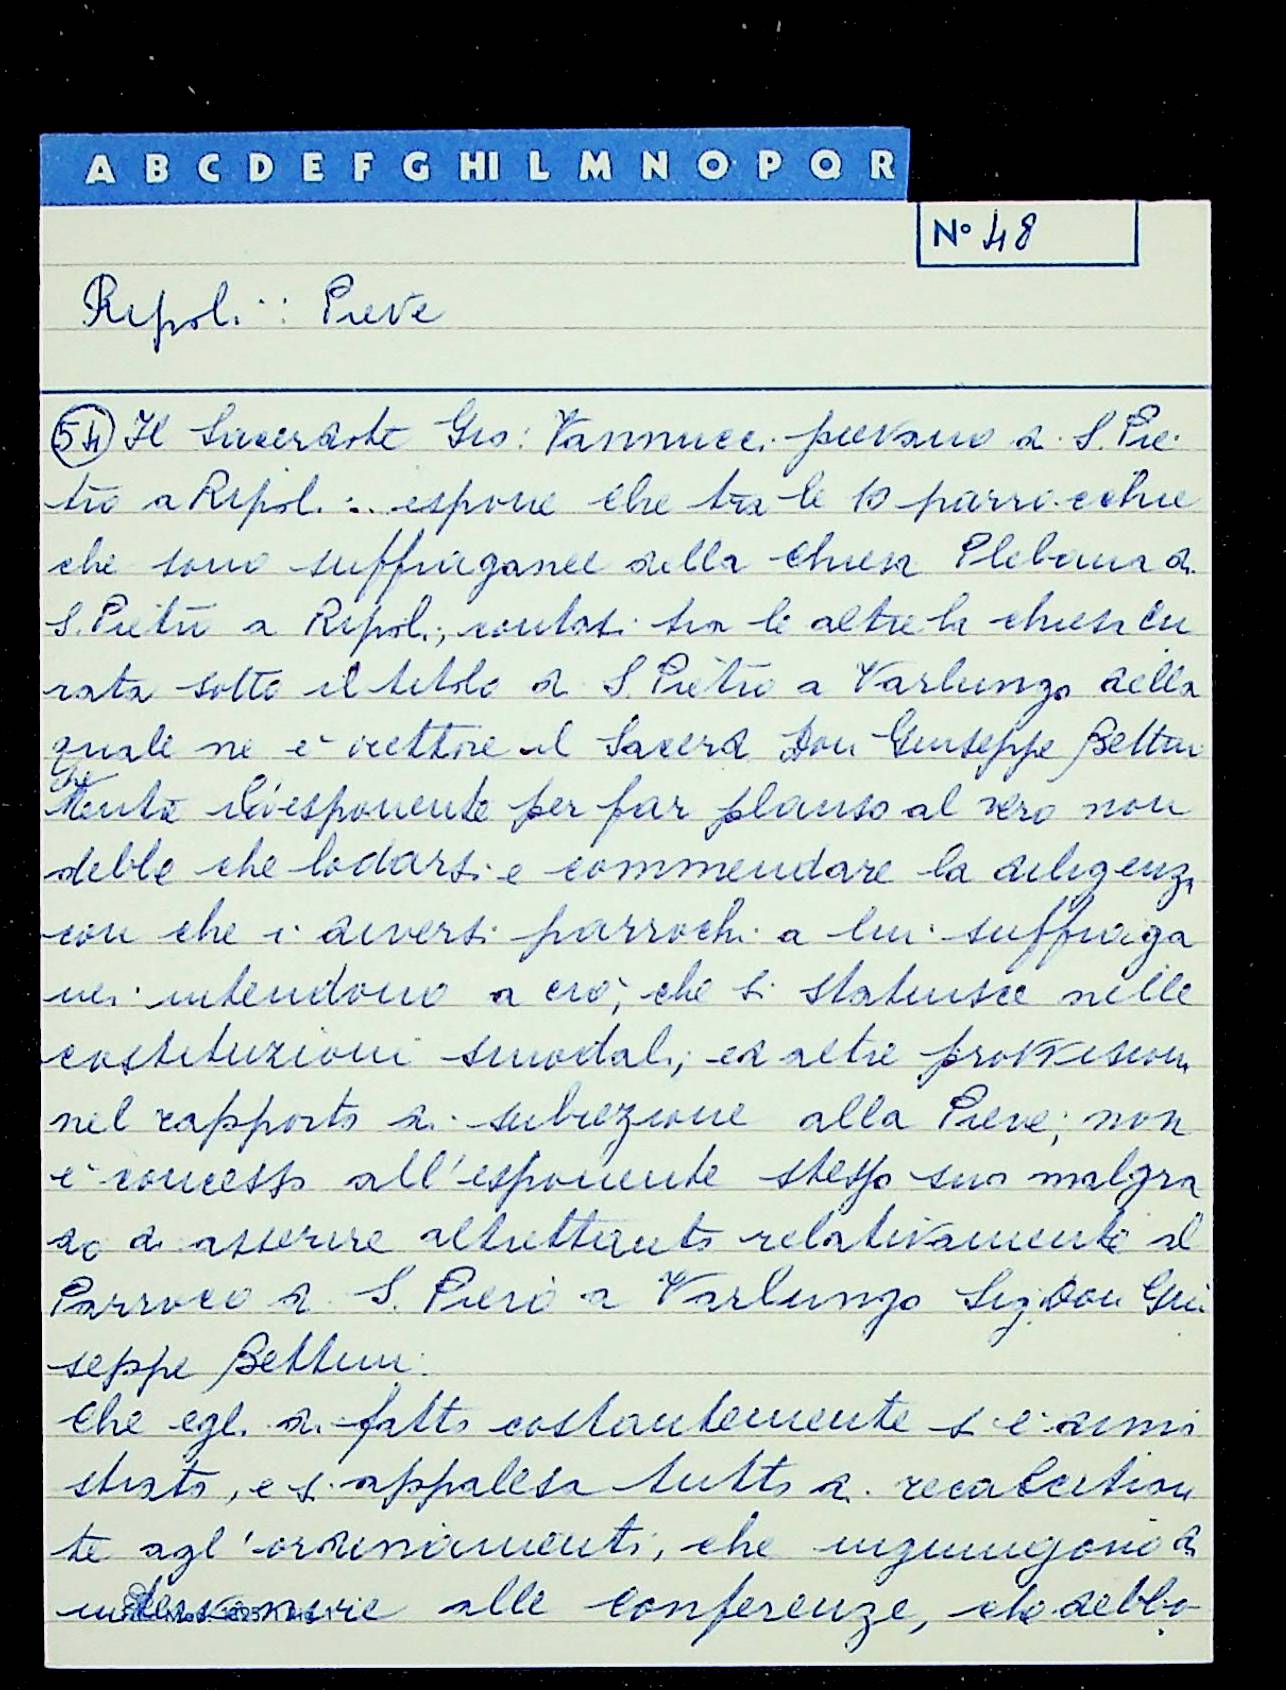 A B C D E F G HI L M N O P Q R
N° 48
Ripoli: Pieve
54 Il Sacerdote Gio: Vannucci pievano di S. Pie
tro a Ripoli: espone che tra le 10 parrocchie
che sono suffraganee della chiesa Plebana di
S. Pietro a Ripoli, contasi tra le altre la chiesa cu
rata sotto il titolo di S. Pietro a Varlungo della
quale ne è rettore il Sacerd. Don Giuseppe Bettini
che
Mentre l'esponente per far plauso al vero non
debbe che lodarsi e commendare la diligenza
con che i diversi parrochi a lui suffraga
nei intendono a ciò, che si statuisce nelle
costituzioni sinodali, ed altre provvisioni
nel rapporto di subiezione alla Pieve, non
è concesso all'esponente stesso suo malgra
do di asserire altrettanto relativamente al
Parroco di S. Piero a Varlungo Sig. Don Giu
seppe Bettini.
Che egli di fatto costantemente si è dimo
strato, e si appalesa tutto dì recalcitran
te agl'ordinamenti, che ingiungono di
intervenire alle conferenze, che debbo